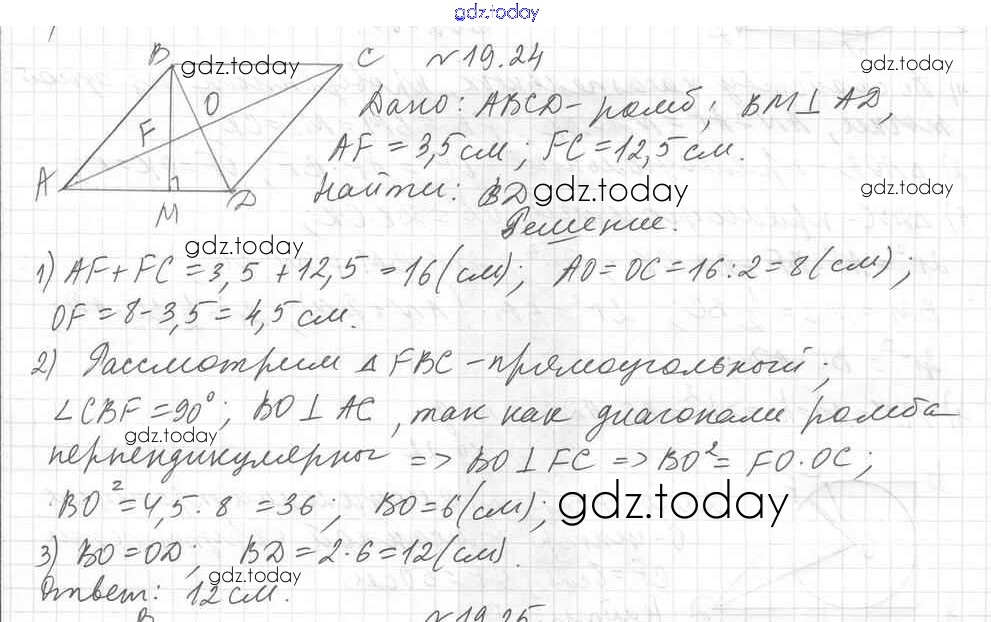 gdz.today
B gdz.today C №19.24 gdz.today
O Дано: ABCD-ромб; BM⊥AD,
F AF=3,5см; FC=12,5см.
A M D Найти: BD gdz.today gdz.today
Решение.
gdz.today
1) AF+FC=3,5+12,5=16(см); AO=OC=16:2=8(см);
OF=8-3,5=4,5см.
2) Рассмотрим ΔFBC-прямоугольный;
∠CBF=90°; BO⊥AC, так как диагонали ромба
gdz.today
перпендикулярны => BO⊥FC => BO²=FO·OC;
BO²=4,5·8=36; BO=6(см); gdz.today
3) BO=OD; BD=2·6=12(см).
gdz.today
Ответ: 12см.
B №19.25